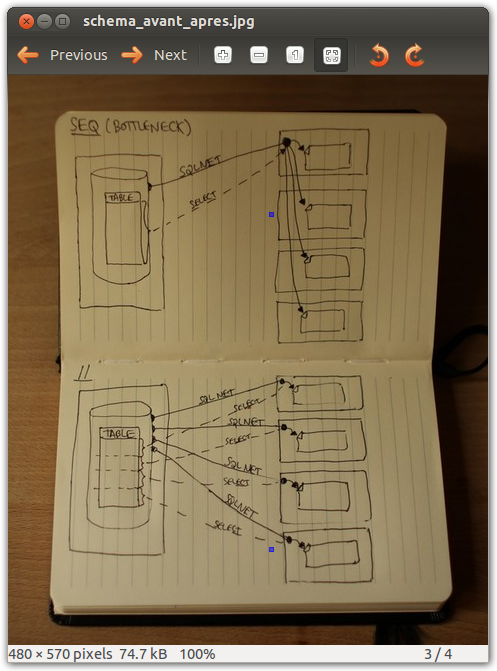 schema_avant_apres.jpg
Previous
Next
SEQ (BOTTLENECK)
SQLNET
SELECT
TABLE
//
SQLNET
SELECT
SQLNET
SELECT
TABLE
SQLNET
SELECT
SQLNET
SELECT
480 × 570 pixels 74.7 kB 100% 3 / 4